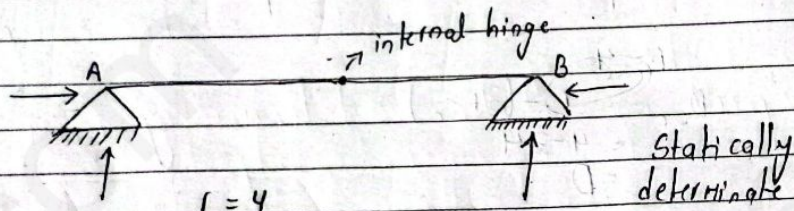 internal hinge
A
B
Statically
determinate
r = 4